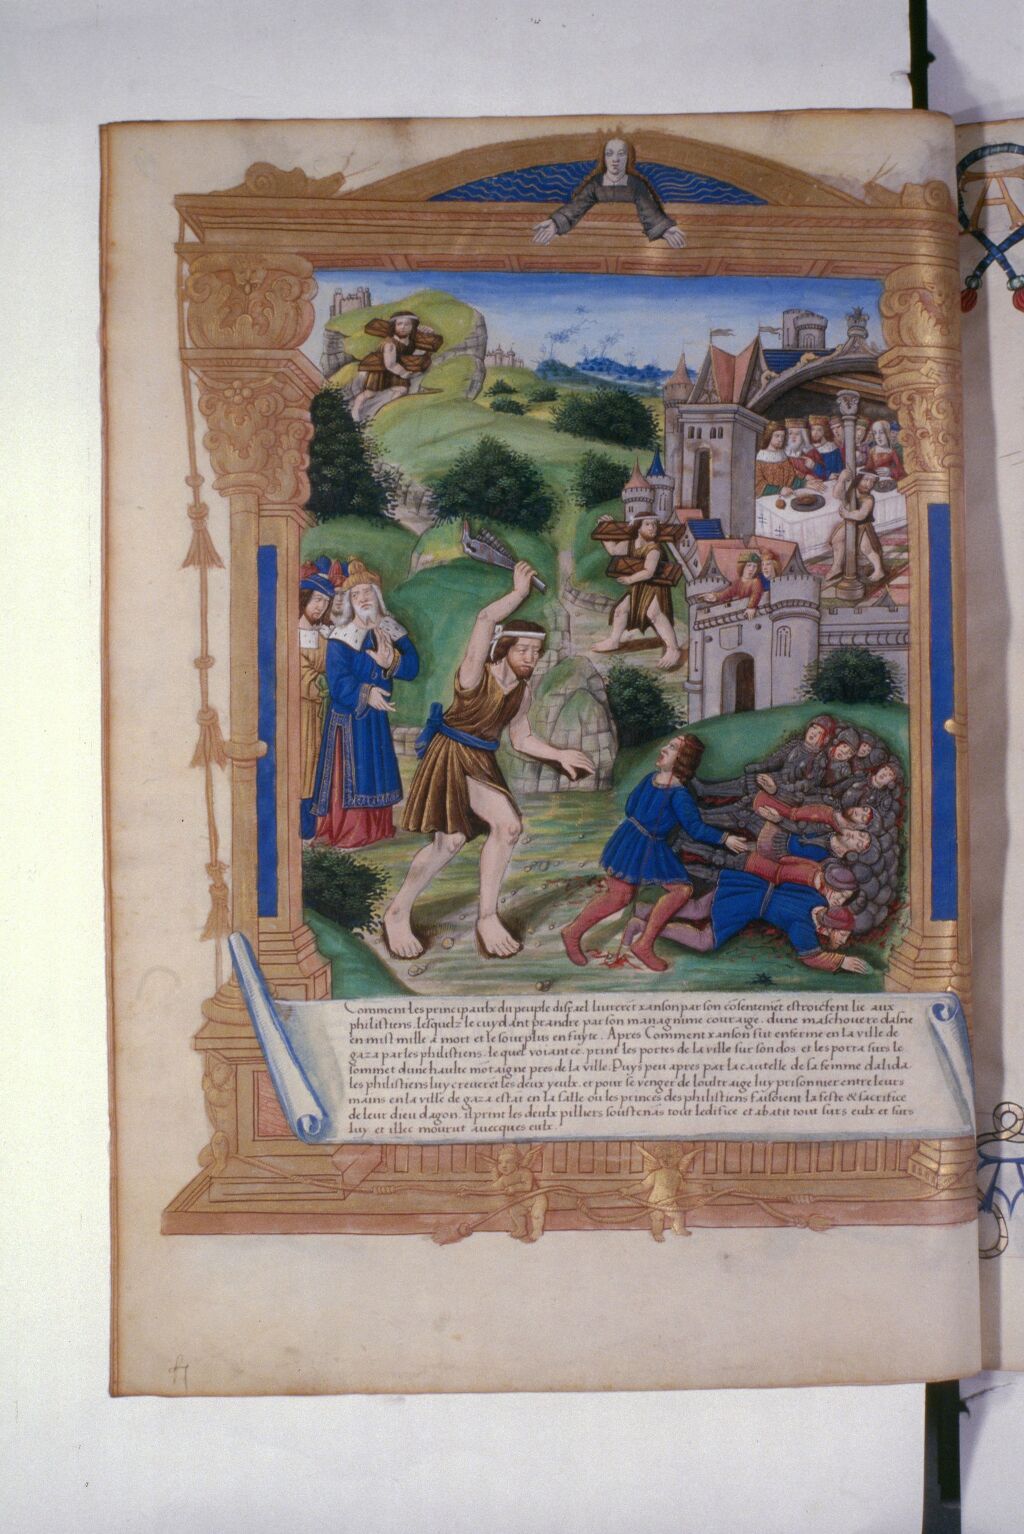 Comment les principaulx du peuple disrael livrerent xanson par son cosentemēt estroictem̄t lie aux
philistiens. lesquelz le cuydant prandre par son managnime couraige. dune maschouere dasne
en mist mille a mort et le sourplus en fuyte. Apres Comment xanson fut enferme en la ville de
gaza par les philistiens. le quel voiant ce. print les portes de la ville sur son dos et les porta surs le
sommet dune haulte mōtaigne pres de la ville. Puys peu apres par la cautelle de sa femme dalida.
les philistiens luy creverēt les deux yeulx. et pour se venger de loultraige luy prisonnier entre leurs
mains en la ville de gaza estāt en la salle ou les princes des philistiens faisoient la feste & sacrifice
de leur dieu dagon. il print les deulx pilliers soustenās tout ledifice et abatit tout surs eulx et surs
luy. et illec mourut avecques eulx.